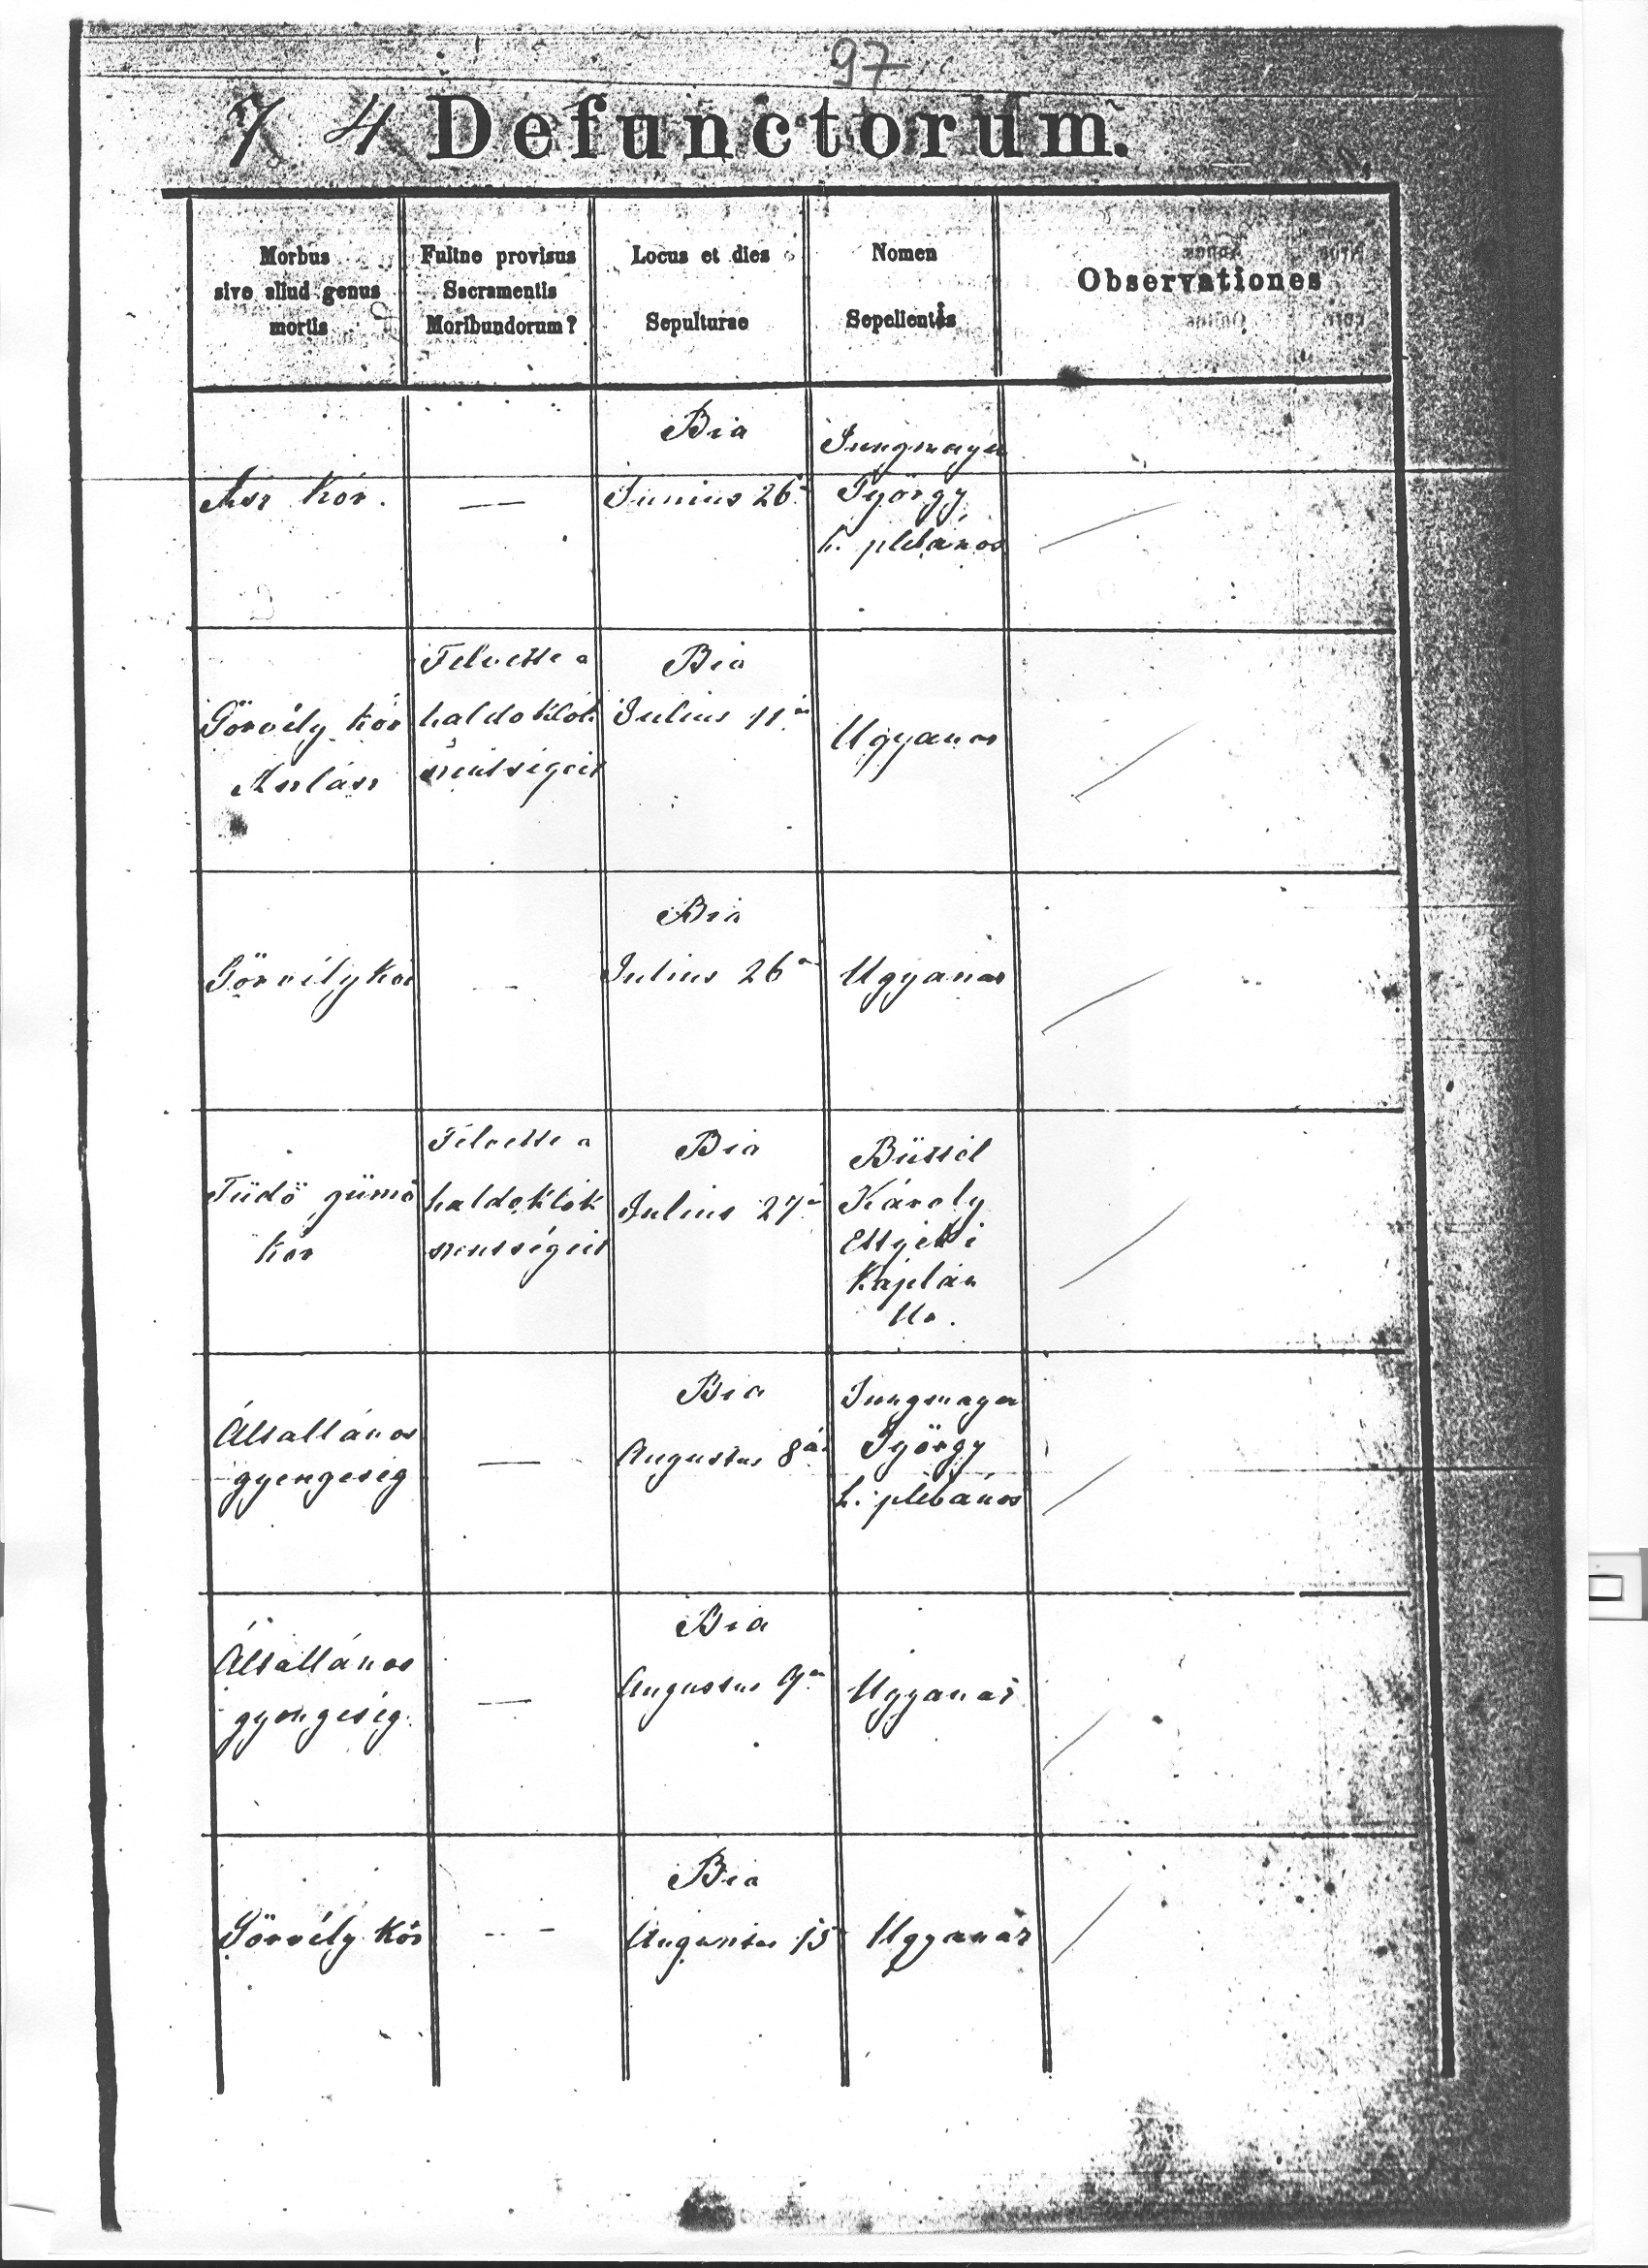 97
7 4 Defunctorum.
Morbus
sive aliud genus
mortis
Fuitne provisus
Sacramentis
Moribundorum?
Locus et dies
Sepulturae
Nomen
Sepelientis
Observationes
Asz Kór.
—
Bia
Junius 26án
Jungmayer
György
h. plebános
Görvély kór
Felvette a
haldoklók
szentségeit
Bia
Julius 11án
Ugyanaz
Görvély kór
—
Bia
Julius 26án
Ugyanaz
Tüdő gümő
kór
Felvette a
haldoklók
szentségeit
Bia
Julius 27án
Károly
Ettyeki
Káplán
Úr.
Általlános
gyengeség
—
Bia
Augustus 8án
Jungmayer
György
h. plebános
Általlános
gyengeség
—
Bia
Augustus 9én
Ugyanaz
Görvély kór
—
Bia
Augustus 15
Ugyanaz